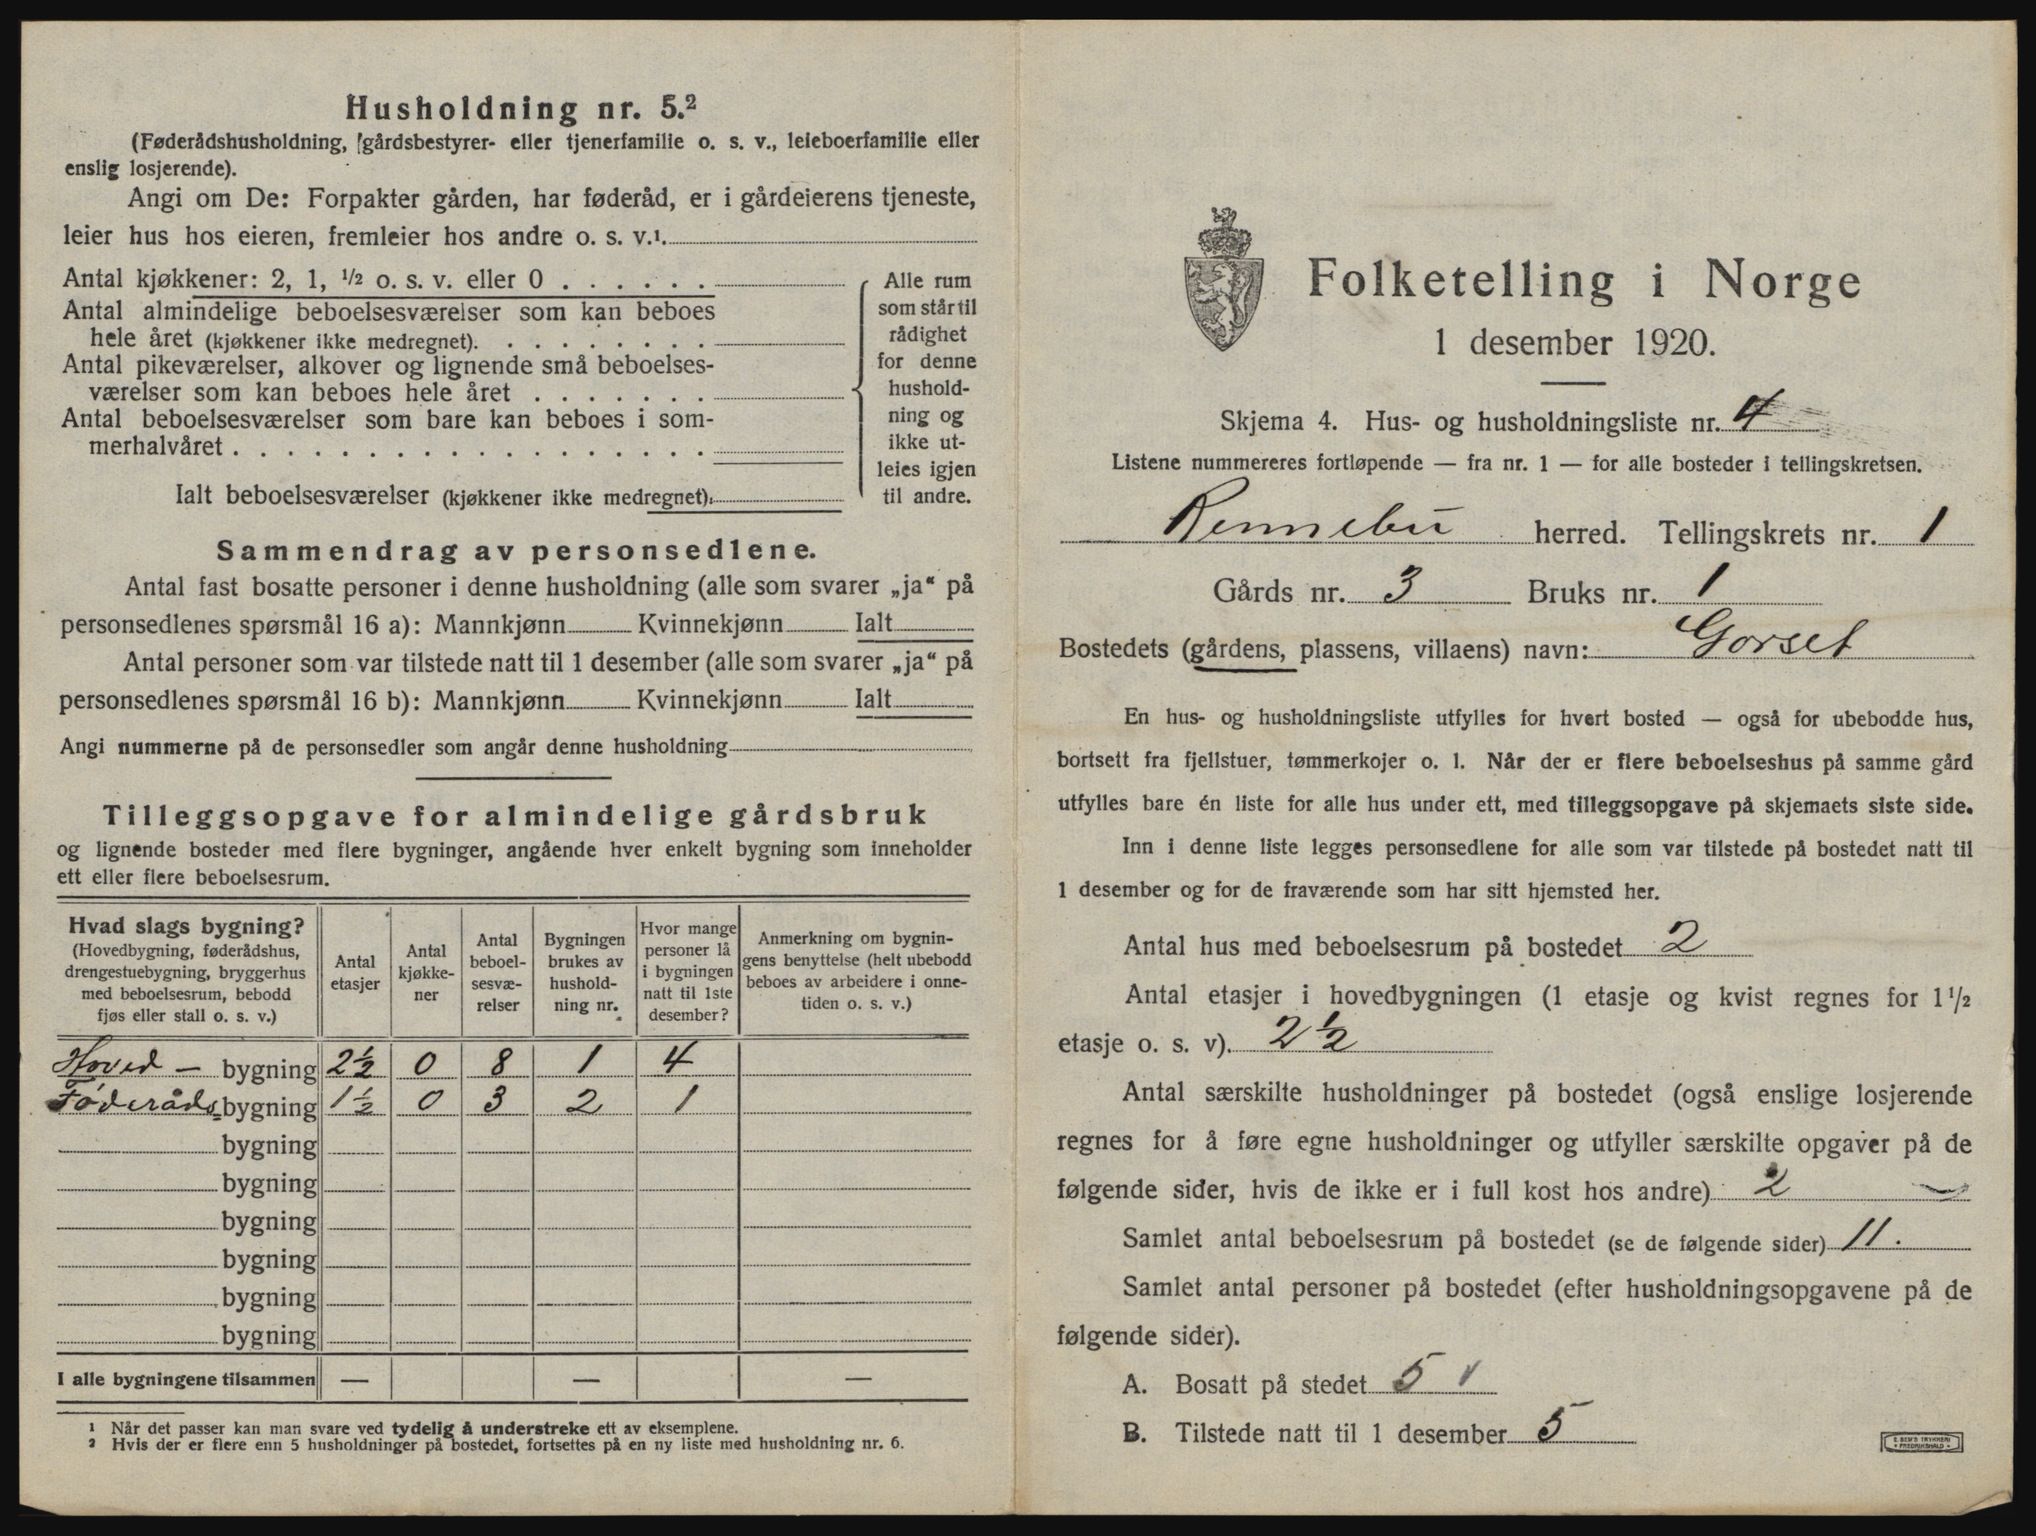 Husholdning nr. 5.²
(Føderådshusholdning, gårdsbestyrer- eller tjenerfamilie o. s. v., leieboerfamilie eller
enslig losjerende).
Angi om De: Forpakter gården, har føderåd, er i gårdeierens tjeneste,
leier hus hos eieren, fremleier hos andre o. s. v.¹.
Antal kjøkkener: 2, 1, ½ o. s. v. eller 0 . . . . . .
Antal almindelige beboelsesværelser som kan beboes
hele året (kjøkkener ikke medregnet). . . . . . . . .
Antal pikeværelser, alkover og lignende små beboelses-
værelser som kan beboes hele året . . . . . . .
Antal beboelsesværelser som bare kan beboes i som-
merhalvåret . . . . . . . . . . . . . . . . . .
Ialt beboelsesværelser (kjøkkener ikke medregnet):
Alle rum
som står til
rådighet
for denne
hushold-
ning og
ikke ut-
leies igjen
til andre.
Sammendrag av personsedlene.
Antal fast bosatte personer i denne husholdning (alle som svarer „ja“ på
personsedlenes spørsmål 16 a): Mannkjønn Kvinnekjønn Ialt
Antal personer som var tilstede natt til 1 desember (alle som svarer „ja“ på
personsedlenes spørsmål 16 b): Mannkjønn Kvinnekjønn Ialt
Angi nummerne på de personsedler som angår denne husholdning
Tilleggsopgave for almindelige gårdsbruk
og lignende bosteder med flere bygninger, angående hver enkelt bygning som inneholder
ett eller flere beboelsesrum.
Hvad slags bygning?
(Hovedbygning, føderådshus,
drengestuebygning, bryggerhus
med beboelsesrum, bebodd
fjøs eller stall o. s. v.)
Antal
etasjer
Antal
kjøkke-
ner
Antal
beboel-
sesvæ-
relser
Bygningen
brukes av
hushold-
ning nr.
Hvor mange
personer lå
i bygningen
natt til 1ste
desember?
Anmerkning om bygnin-
gens benyttelse (helt ubebodd
beboes av arbeidere i onne-
tiden o. s. v.)
Hoved - bygning 2½ 0 8 1 4
Føderåds- bygning 1½ 0 3 2 1
bygning
bygning
bygning
bygning
bygning
bygning
I alle bygningene tilsammen — — —
¹ Når det passer kan man svare ved tydelig å understreke ett av eksemplene.
² Hvis der er flere enn 5 husholdninger på bostedet, fortsettes på en ny liste med husholdning nr. 6.
Folketelling i Norge
1 desember 1920.
Skjema 4. Hus- og husholdningsliste nr. 4
Listene nummereres fortløpende — fra nr. 1 — for alle bosteder i tellingskretsen.
Rennebu herred. Tellingskrets nr. 1
Gårds nr. 3 Bruks nr. 1
Bostedets (gårdens, plassens, villaens) navn: Gorset
En hus- og husholdningsliste utfylles for hvert bosted — også for ubebodde hus,
bortsett fra fjellstuer, tømmerkojer o. l. Når der er flere beboelseshus på samme gård
utfylles bare én liste for alle hus under ett, med tilleggsopgave på skjemaets siste side.
Inn i denne liste legges personsedlene for alle som var tilstede på bostedet natt til
1 desember og for de fraværende som har sitt hjemsted her.
Antal hus med beboelsesrum på bostedet 2
Antal etasjer i hovedbygningen (1 etasje og kvist regnes for 1½
etasje o. s. v). 2½
Antal særskilte husholdninger på bostedet (også enslige losjerende
regnes for å føre egne husholdninger og utfyller særskilte opgaver på de
følgende sider, hvis de ikke er i full kost hos andre) 2
Samlet antal beboelsesrum på bostedet (se de følgende sider) 11.
Samlet antal personer på bostedet (efter husholdningsopgavene på de
følgende sider).
A. Bosatt på stedet 5
B. Tilstede natt til 1 desember 5
E. SEM'S TRYKKERI
• FREDRIKSHALD •